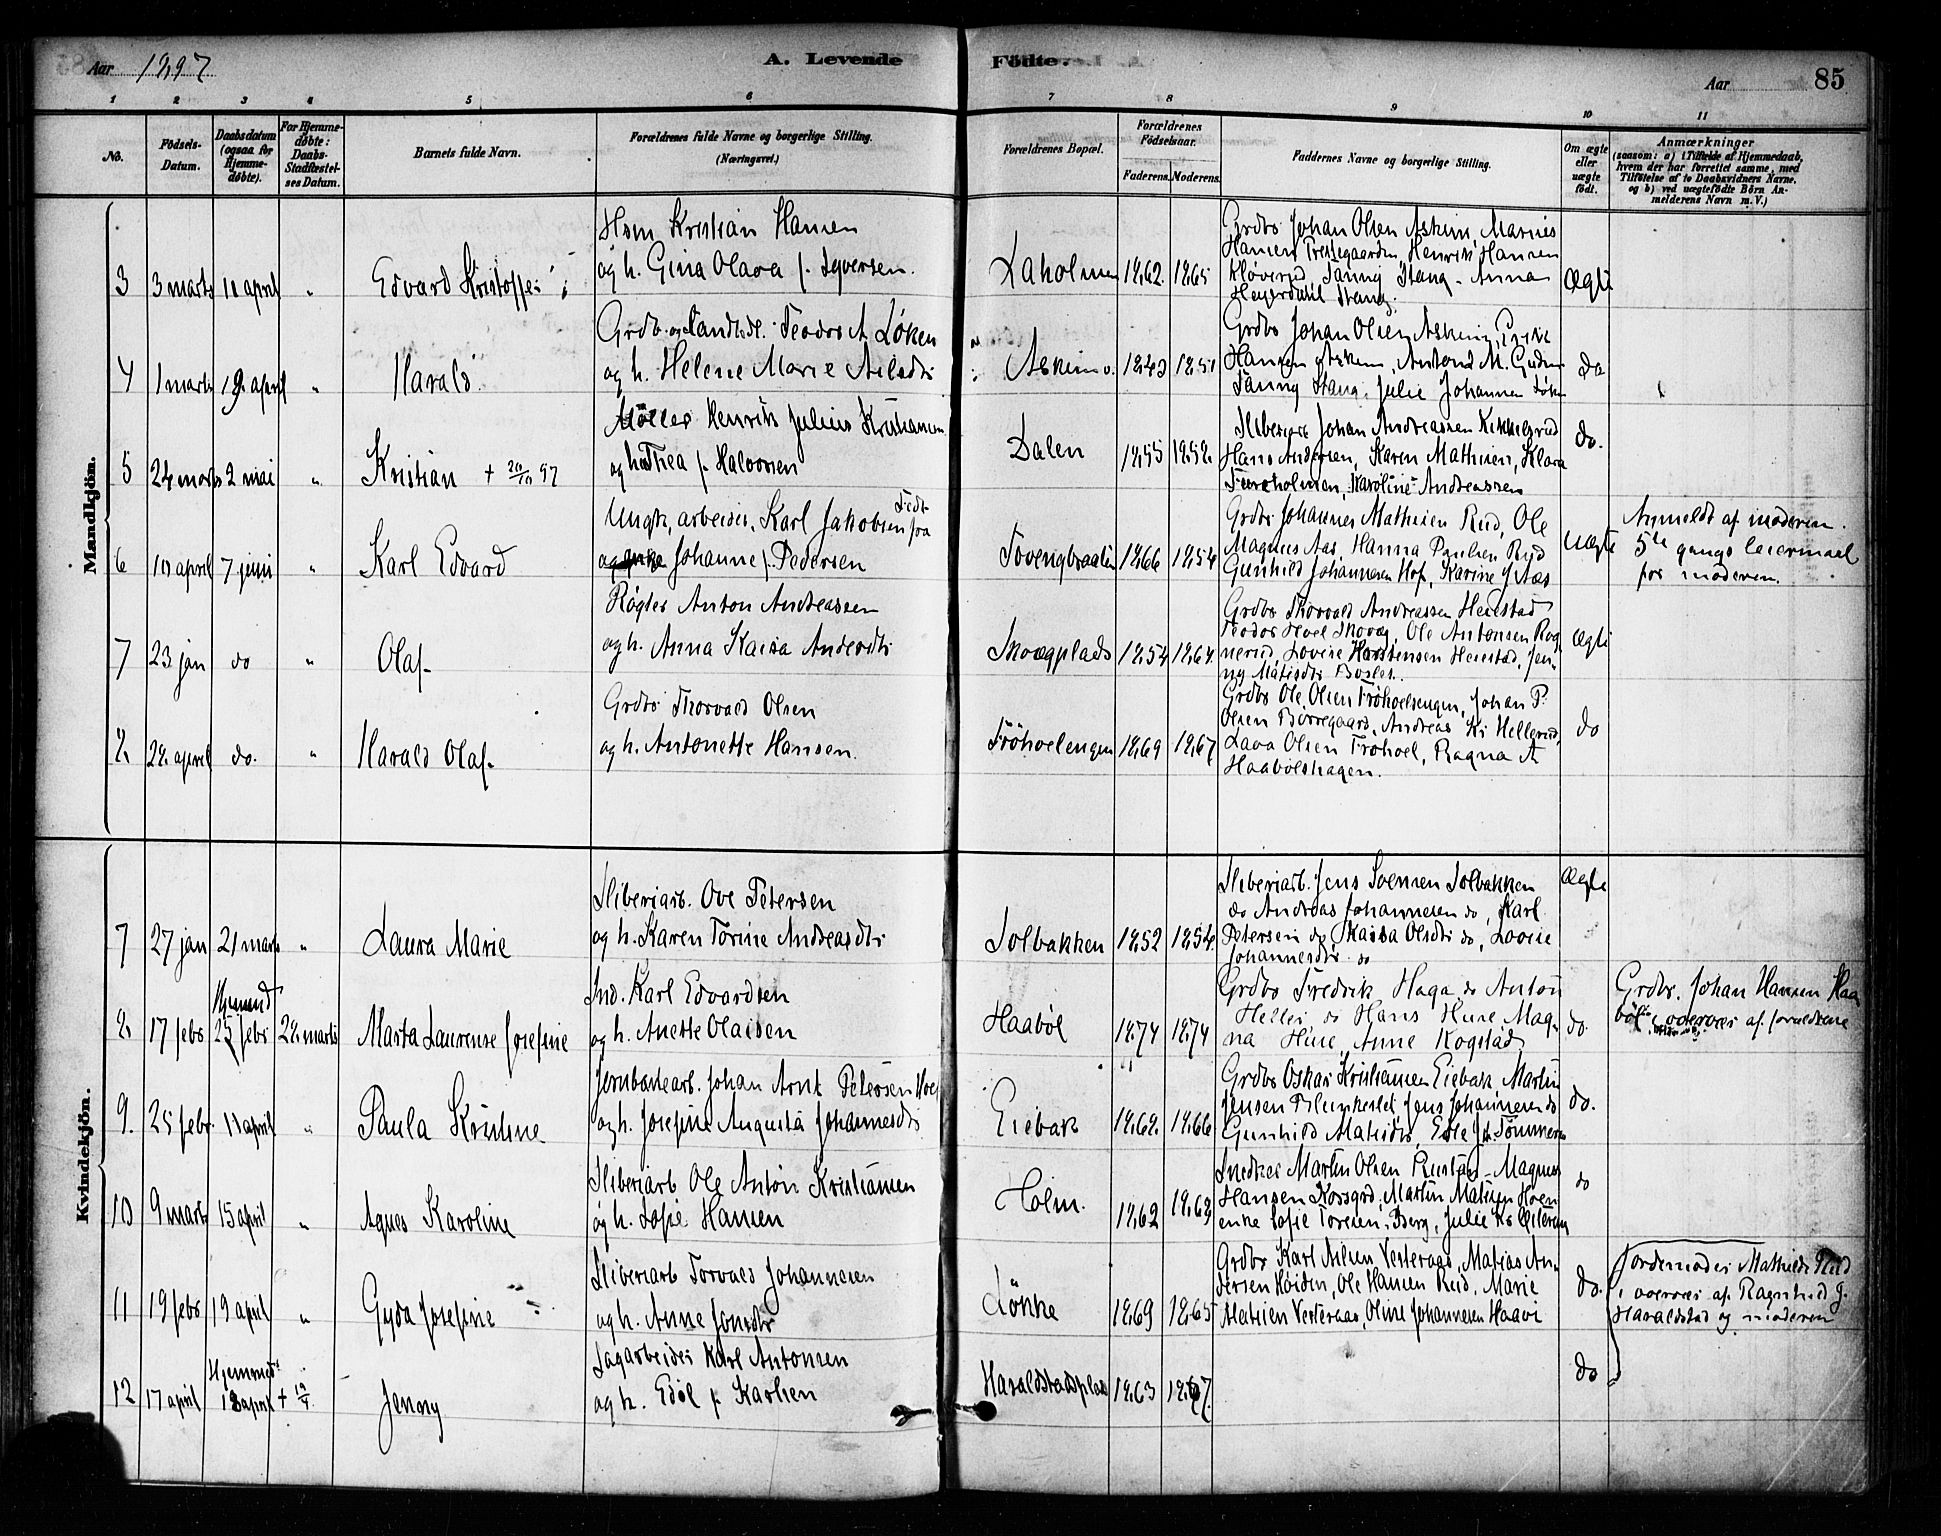 Aar 1897
A. Levende
Fødte.
Aar
85
1 2 3 4 5 6 7 8 9 10 11
No.
Fødsels-Datum.
Daabsdatum (ogsaa for Hjemmedøbte).
For Hjemmedøbte: Daabs-Stadfæstelses Datum.
Barnets fulde Navn.
Forældrenes fulde Navne og borgerlige Stilling. (Næringsvei.)
Forældrenes Bopæl.
Forældrenes Fødselsaar.
Faderens. Moderens.
Faddernes Navne og borgerlige Stilling.
Om ægte eller uægte født.
Anmærkninger
(saasom: a) i Tilfælde af Hjemmedaab,
hvem der har forrettet samme, med
Tilføielse af to Daabsvidners Navne.
og b) ved uægtefødte Børn Anmelderens Navn m. V.)
Mandkjøn.
3 3 marts 11 april " Edvard Kristoffer
Hsm Kristian Hansen
og h. Gina Olava f. Syversen.
Laholmen 1862. 1865
Grdbr Johan Olsen Askim, Marius
Hansen Trestegaarden, Henrik Hansen
Kløverud, Fanny Stang, Anna
Heyerdahl Stang.
Ægte
4 1 marts 19 april " Harald
Grdbr. og Landhdl. Teodor A. Løken
og h. Helene Marie Nilsdtr
Askim ø. 1843 1851
Grdbr Johan Olsen Askim,
Hansen Askim,
Fanny Stang, Julie Johannesen Løken
do
5 24 marts 2 mai " Kristian + 20/10 97
Møller Henrik Julius Kristiansen
og h. Thea f. Halvorsen
Dalen 1855 1858.
Sliberiarb Johan Andreassen Kykkelsrud
Hans Andersen, Karen Mathisen, Klara
Furuholmen, Karoline Andreassen
do.
6 10 april 7 juni " Karl Edvard
Ungk, arbeider, Karl Jakobsen fra
og enke Johanne f. Pedersen
Tovengbraaten 1866 1854
Grdbr Johannes Mathisen Rud, Ole
Magnus Aas, Hanna Paulsen Rud
Gunhild Johannesen Hof, Karine J Aas
Uægte
Anmeldt af moderen.
5te gangs leiermaal
for moderen.
7 23 jan do " Olaf
Røgter Anton Andreassen
og h. Anna Kaisa Andersdtr
Skovgplads 1854 1864.
Grdbr Thorvald Andreassen Heiestad
Teodor Hoel Skovg, Ole Antonsen Rognerud,
Lovise Karstensen Heiestad, Jenny
Matisdtr
Ægte
8. 28. april do. " Harald Olaf
Grdbr Thorvald Olsen
og h. Antonette Hansen.
Frøhoelengen 1869 1867
Grdbr Ole Olsen Frøhoelsengen, Johan P.
Olsen Borregaard, Andreas Kr Hellerud,
Lava Olsen Frøhoel, Ragna A
Haabølshagen.
do
Kvindekjøn.
7 27 jan 21 marts " Laura Marie
Sliberiarb. Ove Petersen
og h. Karen Torine Andreasdtr
Solbakken 1852 1854.
Sliberiarb. Jens Svensen Solbakken
do Andreas Johannesen do, Karl
Petersen do, Kaisa Olsdtr do, Lovise
Johannesdtr do
Ægte
8. 17 febr Hjemmd 25 febr 28. marts Marta Laurense Josefine
Ind. Karl Edvardsen
og h. Anette Olaisen
Haabøl 1874 1874
Grdbr Fredrik Haga do Anton
Heller do Hans Hue Magna
Hue, Anne Kogstad
do.
Grdbr. Johan Hansen Haabøl
i overvær af forældrene
9. 25 febr. 11 april " Paula Kristine
Jernbanearb. Johan Arnt Petersen Hoel
og h. Josefine Augusta Johannesdtr
Eiebak 1862. 1866
Grdbr Oskar Kristiansen Eiebak Martin
Jensen, Jens Johannesen do
Gunhild Matisdtr,
do.
10 9 marts 15 april " Agnes Karoline
Sliberiarb Ole Anton Kristiansen
og h. Sofie Hansen
Holm. 1862 1863
Snedker Martin Olsen Rustad, Magnus
Hansen Korsgrd, Martin Matisen Hoen
enke Sofie Toresen, Berg, Julie Kr
do
11 19 febr 19 april " Gyda Josefine
Sliberiarb Torvald Johannesen
og h. Anne Jonsdtr
Løkke 1869 1865
Grdbr Karl Nilsen Vesteraas, Matias Andersen
Høiden, Ole Hansen Rud, Marie
Matisen Vesteraas, Oline Johannesen Haavi
do.
Jordemoder Mathilde Rud
i overvær af Ragnhild G.
Haraldstad og moderen
12 17 april Hjemmed 18 april + 19/4 Jenny
Sagarbeider Karl Antonsen
og h. Edel f. Karlsen
Haraldstadplads 1863 1867.
do